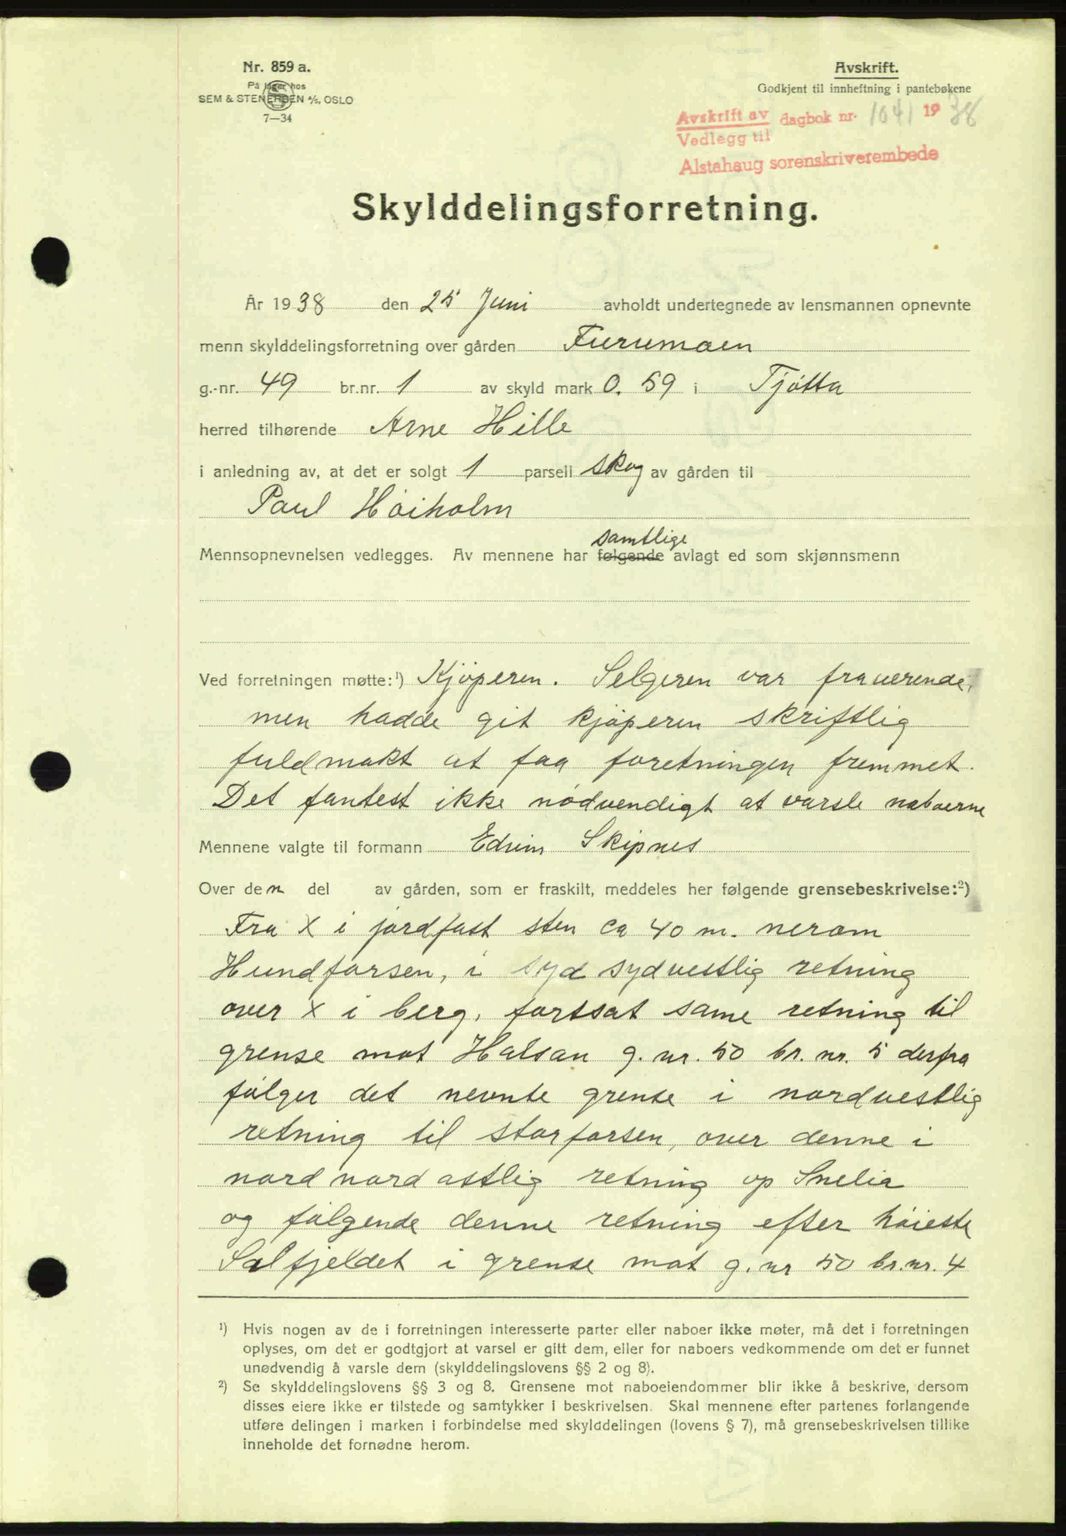 Nr. 859 a.
På lager hos
SEM & STENERSEN A/S, OSLO
7—34
Avskrift.
Godkjent til innheftning i pantebøkene
Avskrift av
Vedlegg til
dagbok nr. 1041 1938
Alstahaug sorenskriverembede
Skylddelingsforretning.
År 1938 den 25 Juni avholdt undertegnede av lensmannen opnevnte
menn skylddelingsforretning over gården Furumoen
g.-nr. 49 br.nr. 1 av skyld mark 0.59 i Tjøtta
herred tilhørende Arne Hille
i anledning av, at det er solgt 1 parsell skog av gården til
Paul Høiholm
samtlige
Mennsopnevnelsen vedlegges. Av mennene har følgende avlagt ed som skjønnsmenn
Ved forretningen møtte:¹) Kjøperen. Selgeren var fraverende,
men hadde git kjøperen skriftlig
fuldmakt at faa foretningen fremmet.
Det fantest ikke nødvendigt at varsle naboerne
Mennene valgte til formann Edvin Skipnes
Over den del av gården, som er fraskilt, meddeles her følgende grensebeskrivelse:²)
Fra X i jordfast sten ca 40 m. nerom
Hundforsen, i syd sydvestlig retning
over X i berg, fortsat same retning til
grense mot Halsan g. nr. 50 br. nr. 5 derfra
følger det nevnte grense i nordvestlig
retning til storforsen, over denne i
nord nord østlig retning op Snelia
og følgende denne retning efter høieste
Salfjeldet i grense mot g. nr 50 br. nr. 4
¹) Hvis nogen av de i forretningen interesserte parter eller naboer ikke møter, må det i forretningen
oplyses, om det er godtgjort at varsel er gitt dem, eller for naboers vedkommende om det er funnet
unødvendig å varsle dem (skylddelingslovens §§ 2 og 8).
²) Se skylddelingslovens §§ 3 og 8. Grensene mot naboeiendommer blir ikke å beskrive, dersom
disses eiere ikke er tilstede og samtykker i beskrivelsen. Skal mennene efter partenes forlangende
utføre delingen i marken i forbindelse med skylddelingen (lovens § 7), må grensebeskrivelsen tillike
inneholde det fornødne herom.